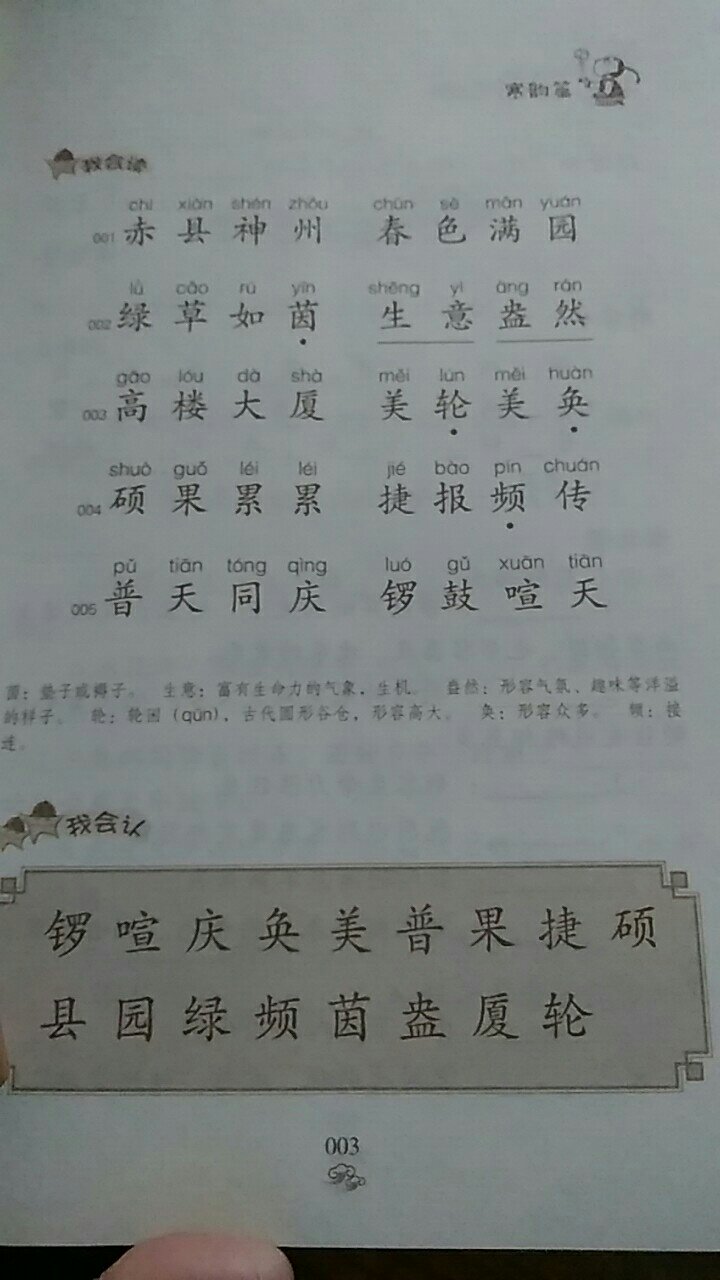 寒韵篇
我会读
chì xiàn shén zhōu chūn sè mǎn yuán
001 赤县神州 春色满园
lǜ cǎo rú yīn shēng yì àng rán
002 绿草如茵 生意盎然
gāo lóu dà shà měi lún měi huàn
003 高楼大厦 美轮美奂
shuò guǒ léi léi jié bào pín chuán
004 硕果累累 捷报频传
pǔ tiān tóng qìng luó gǔ xuān tiān
005 普天同庆 锣鼓喧天
茵：垫子或褥子。 生意：富有生命力的气象，生机。 盎然：形容气氛、趣味等洋溢
的样子。 轮：轮囷（qūn），古代圆形谷仓，形容高大。 奂：形容众多。 频：接
连。
我会认
锣 喧 庆 奂 美 普 果 捷 硕
县 园 绿 频 茵 盎 厦 轮
003